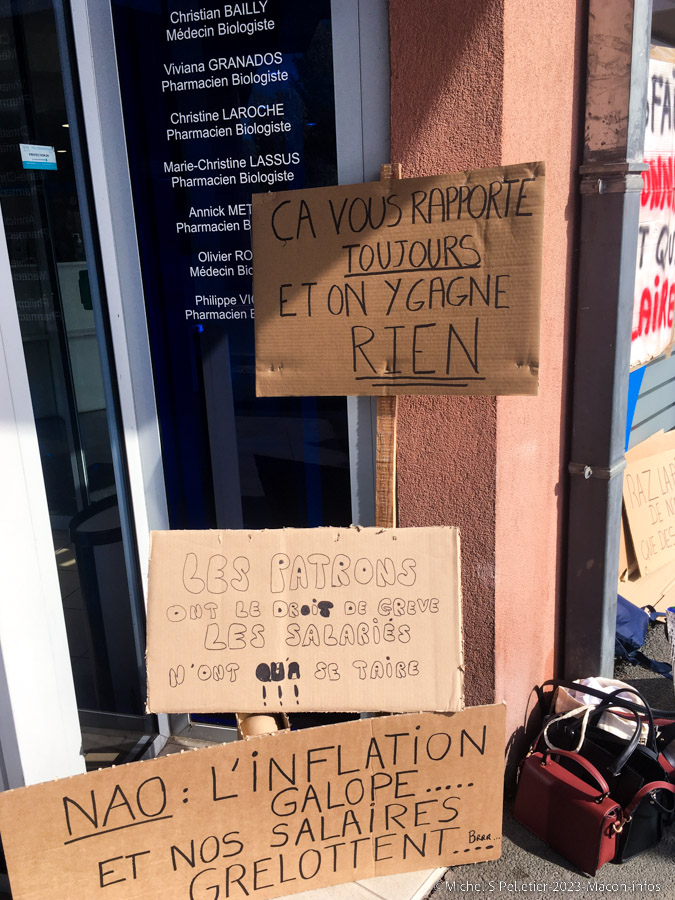 Christian BAILLY
Médecin Biologiste
Viviana GRANADOS
Pharmacien Biologiste
Christine LAROCHE
Pharmacien Biologiste
Marie-Christine LASSUS
Pharmacien Biologiste
Annick
Pharmacien
Olivier
Médecin
Philippe
Pharmacien
ÇA VOUS RAPPORTE
TOUJOURS
ET ON Y GAGNE
RIEN
LES PATRONS
ONT LE DROIT DE GREVE
LES SALARIÉS
N'ONT QU'A SE TAIRE
!!!
NAO : L'INFLATION
GALOPE.....
ET NOS SALAIRES
GRELOTTENT.... Brrr...
RAZ LA
DE N
QUE DES
© Michel S Pelletier-2023-Macon-infos